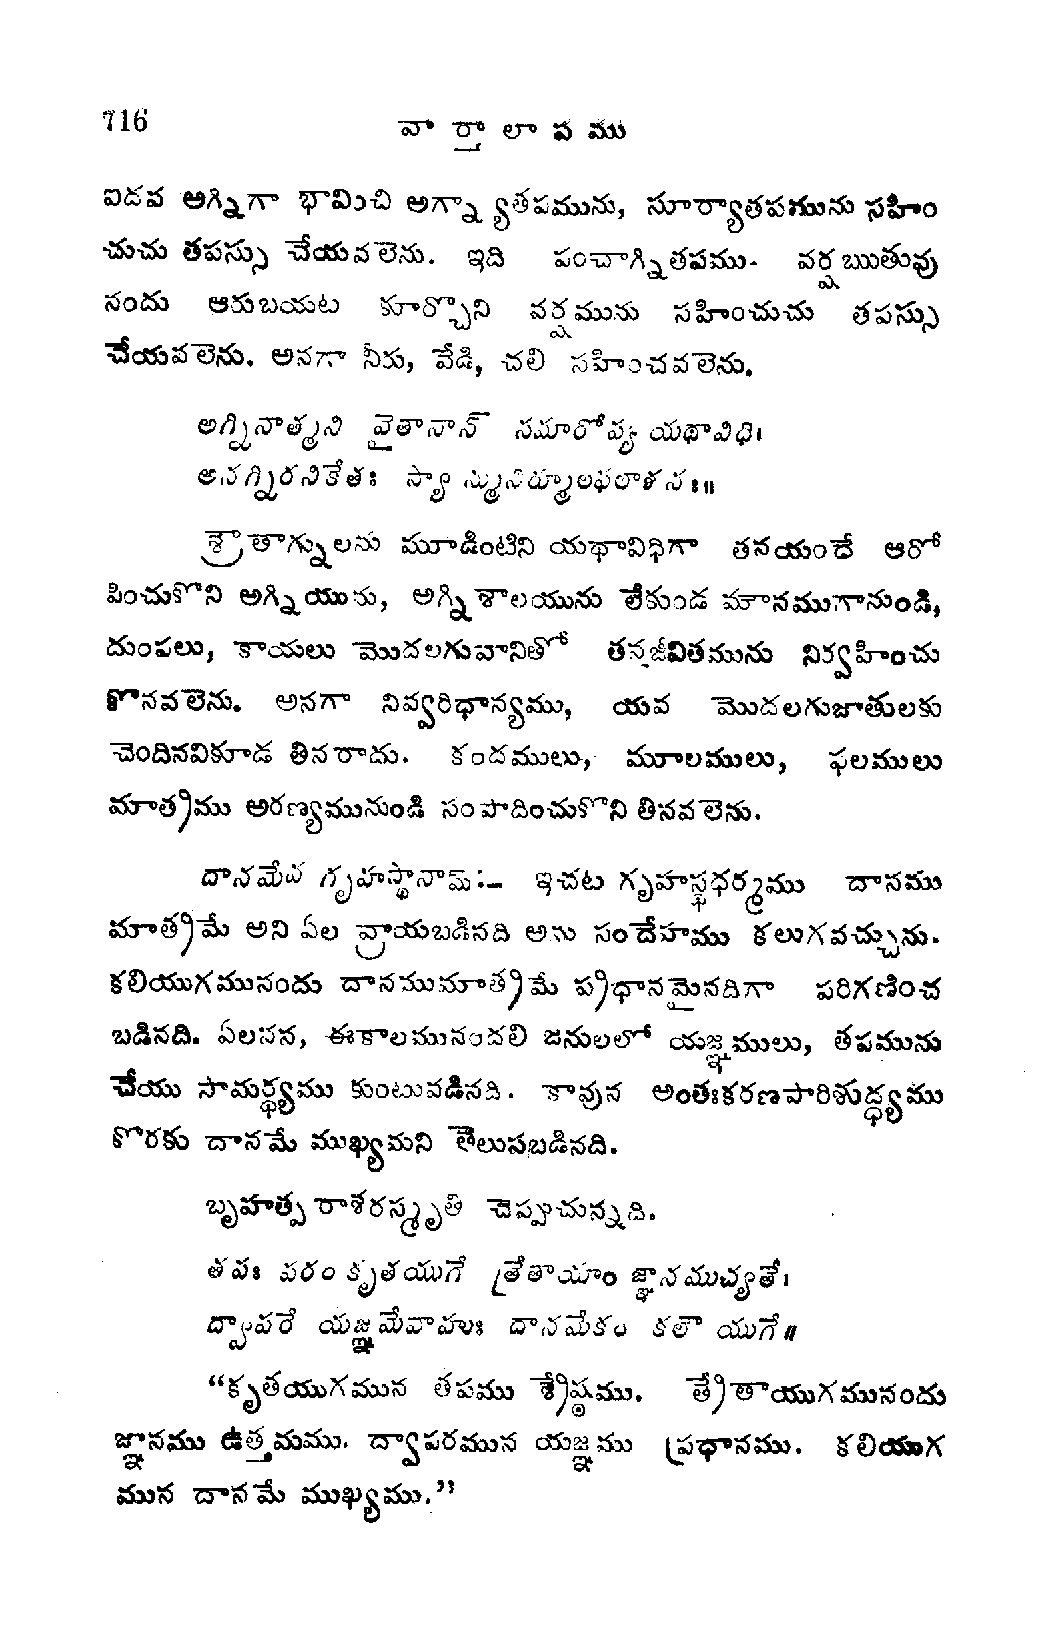 716
వార్తాలాపము
ఐదవ అగ్నిగా భావించి అగ్నా్యతపమును, సూర్యాతపమును సహిం
చుచు తపస్సు చేయవలెను. ఇది పంచాగ్నితపము- వర్షఋతువు
నందు ఆరుబయట కూర్చొని వర్షమును సహించుచు తపస్సు
చేయవలెను. అనగా నీరు, వేడి, చలి సహించవలెను.
అగ్నీనాత్మని వైతానాన్ సమారోప్య యథావిధి।
అనగ్నిరనికేతః స్యా న్మునిర్మూలఫలాశనః॥
శ్రౌతాగ్నులను మూడింటిని యథావిధిగా తనయందే ఆరో
పించుకొని అగ్నియును, అగ్నిశాలయును లేకుండ మౌనముగానుండి,
దుంపలు, కాయలు మొదలగువానితో తనజీవితమును నిర్వహించు
కొనవలెను. అనగా నివ్వరిధాన్యము, యవ మొదలగుజాతులకు
చెందినవికూడ తినరాదు. కందములు, మూలములు, ఫలములు
మాత్రము అరణ్యమునుండి సంపాదించుకొని తినవలెను.
దానమేవ గృహస్థానామ్:- ఇచట గృహస్థధర్మము దానము
మాత్రమే అని ఏల వ్రాయబడినది అను సందేహము కలుగవచ్చును.
కలియుగమునందు దానముమాత్రమే ప్రధానమైనదిగా పరిగణించ
బడినది. ఏలనన, ఈకాలమునందలి జనులలో యజ్ఞములు, తపమును
చేయు సామర్థ్యము కుంటువడినది. కావున అంతఃకరణపారిశుద్ధ్యము
కొరకు దానమే ముఖ్యమని తెలుపబడినది.
బృహత్పరాశరస్మృతి చెప్పుచున్నది.
తపః పరం కృతయుగే త్రేతాయాం జ్ఞానముచ్యతే।
ద్వాపరే యజ్ఞమేవాహుః దానమేకం కలౌ యుగే॥
“కృతయుగమున తపము శ్రేష్ఠము. త్రేతాయుగమునందు
జ్ఞానము ఉత్తమము. ద్వాపరమున యజ్ఞము ప్రధానము. కలియుగ
మున దానమే ముఖ్యము.”